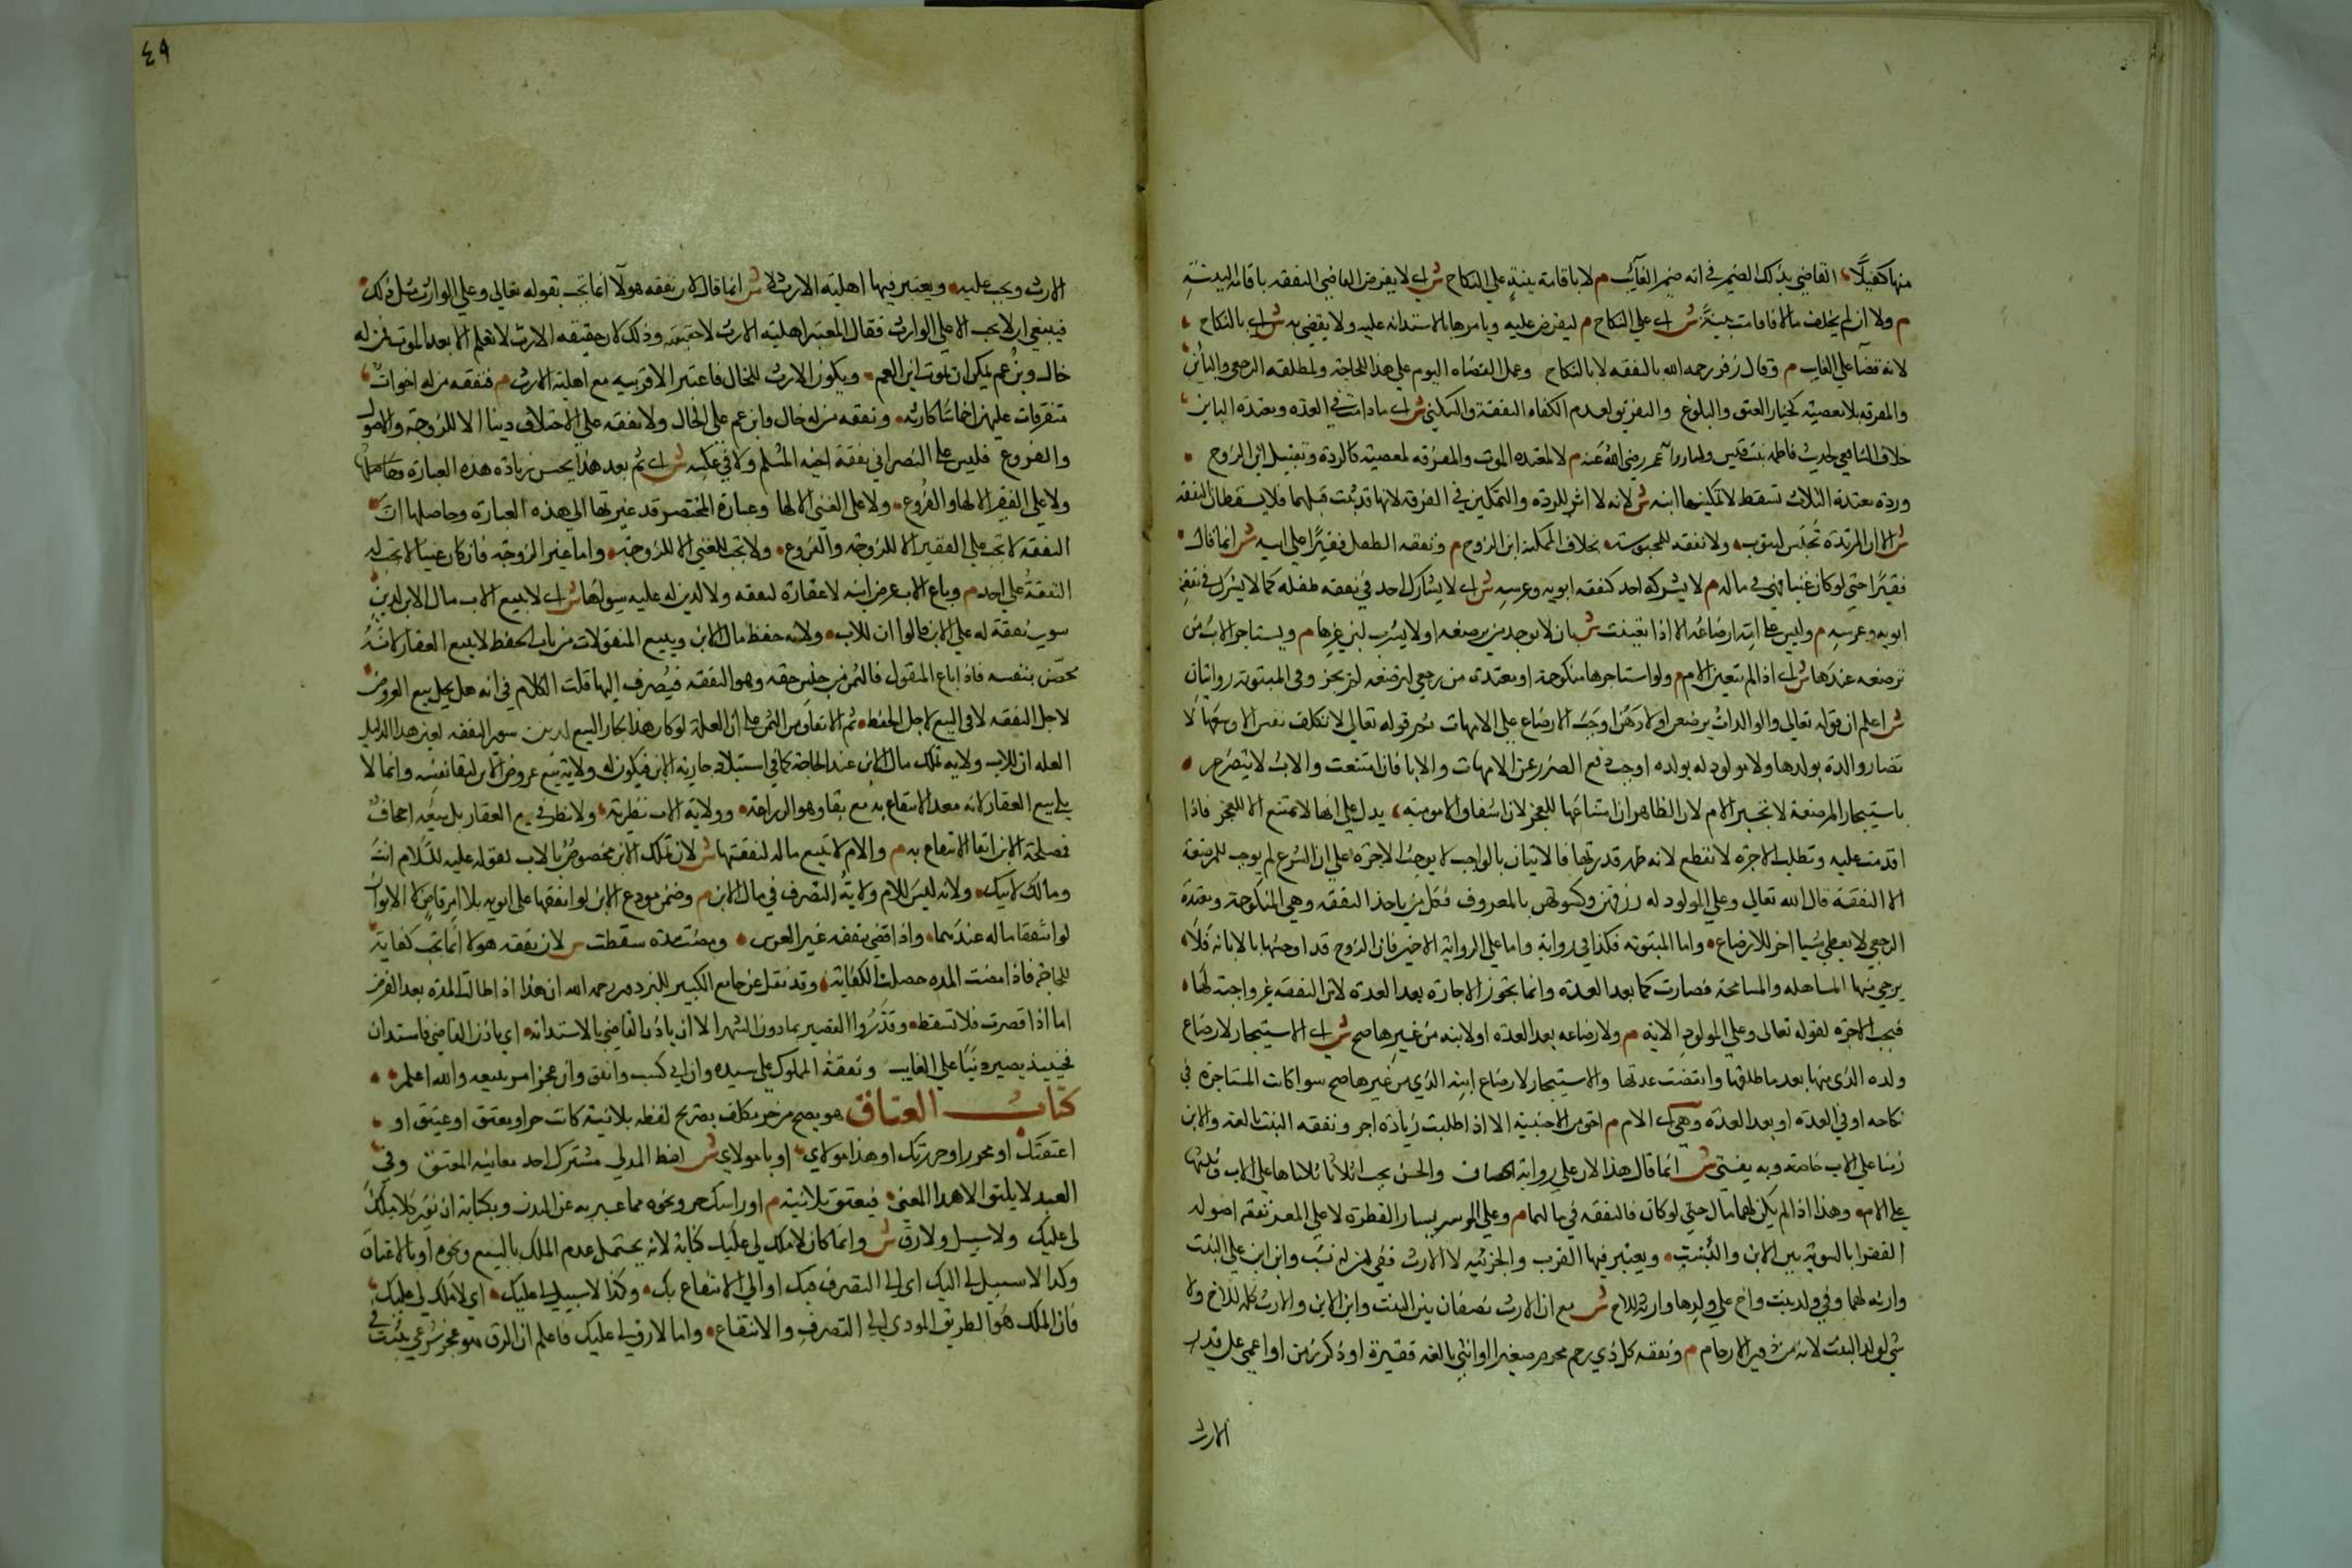 منها كفيلا القاضي بذلك الضمير في انه ضمير الغائب م لا باقامة بينة على النكاح ش اي لا يفرض القاضي النفقه باقامة البينة
م ولا ان لم يخلف مالا فاقامت بينة ش اي على النكاح م ليفرض عليه ويامرها بالاستدانه عليه ولا يقضي به ش اي بالنكاح
لانه قضا على الغايب م وقال زفر رحمه الله بالنفقه لا بالنكاح وعمل القضاه اليوم على هذا للحاجة ولمطلقه الرجعي والبائن
والمفرقه بلا معصية كخيار العتق والبلوغ والتفريق لعدم الكفاه النفقة والسكنى ش اي ما دامت في العده ومعتدة الباين
خلاف الشافعي لحديث فاطمه بنت قيس ولنا رد عمر رضي الله عنه م لا لمعتده الموت والمفرقه لمعصية كالردة وتقبيل ابن الزوج
وردة معتدة الثلاث تسقط لا تمكينها ابنه ش لانه لا اثر للردة والتمكين في الفرقه لانها قد ثبتت قبلهما فلا يسقطان النفقه
ش الا ان المرتدة تحبس لتتوب ولا نفقه للمحبوسه بخلاف الممكنة ابن الزوج م ونفقه الطفل فقيرا على ابيه ش انما قال
فقيرا حتى لو كان غنيا فهي في ماله م لا يشركه احد كنفقه ابويه وعرسه ش اي لا يشارك احد في نفقه طفله كما لا يشرك في نفقة
ابويه وعرسه م وليس على امه ارضاعه الا اذا تعينت ش بان لا يوجد من يرضعه او لا يشرب لبن غيرها م ويستاجر الاب من
ترضعه عندها ش اي اذا لم تتعين الام م ولو استاجرها منكوحة او معتدة من رجعي لترضعه لم يجز وفي المبتوتة روايتان
ش اعلم ان قوله تعالى والوالدات يرضعن اولادهن اوجب الارضاع على الامهات ثم قوله تعالى لا تكلف نفس الا وسعها لا
تضار والدة بولدها ولا مولود له بولده اوجب دفع الضرر عن الامهات والابا فان امتنعت والاب لا يتضرر
باستيجار المرضعة لا تجبر الام لان الظاهر ان امتناعها للعجز لان اشفاق الامومية يدل على انها لا تمتنع الا للعجز فاذا
اقدمت عليه وتطلب الاجره لا تعطى لانه ظهر قدرتها فالاتيان بالواجب لا يوجب الاجرة على ان الشرع لم يوجب للمرضعة
الا النفقة قال الله تعالى وعلى المولود له رزقهن وكسوتهن بالمعروف فكل من ياخذ النفقه وهي المنكوحة ومعتدة
الرجعي لا يعطى شيا اخر للارضاع واما المبتوته فكذا في رواية واما على الرواية الاخيرة فان الزوج قد اوحشها بالابانة فلا
يرجى منها المساهله والمسامحة فصارت كما بعد العدة وانما تجوز الاجارة بعد العدة لان النفقه غير واجبة لها
فيجب الاجرة لقوله تعالى وعلى المولود الاية م ولارضاعه بعد العدة او لابنه من غيرها صح ش اي الاستيجار لارضاع
ولده الذي منها بعد ما طلقها وانقضت عدتها والاستيجار لارضاع ابنه الذي من غيرها صح سوا كانت المستاجرة في
نكاحه او في العدة او بعد العدة وهي اي الام م احق من الاجنبية الا اذا طلبت زيادة اجر ونفقه البنت بالغه والابن
زمنا على الاب خاصة وبه يفتى ش انما قال هذا لان على رواية الخصاف والحسن يجب اثلاثا ثلثاها على الاب وثلثها
على الام وهذا اذا لم يكن لهما مال حتى لو كان فالنفقه في مالهما م وعلى الموسر يسار الفطرة لا على المعسر نفقه اصوله
الفقرا بالسوية بين الابن والبنت ويعتبر فيها القرب والجزئيه لا الارث ففي من له بنت وابن ابن على البنت
وارثه لهما وفي ولد بنت واخ على ولدها وارثه للاخ ش مع ان الارث نصفان بين البنت وابن الابن والارث كله للاخ ولا
شي لولد البنت لانه من ذوي الارحام م ونفقه كل ذي رحم محرم صغير او انثى بالغه فقيرة او ذكر زمن او اعمى على قدر
الارث
٤٩
الارث ويجب عليه ويعتبر فيها اهلية الارث لا ش انما قال لان نفقه هولا انما تجب بقوله تعالى وعلى الوارث مثل ذلك
فينبغي ان لا يجب الا على الوارث فقال المعتبر اهلية الارث لا حقيقته وذلك لان حقيقه الارث لا تعلم الا بعد الموت فمن له
خال وبن عم يمكن ان يموت ابن العم ويكون الارث للخال فاعتبر الاقربيه مع اهلية الارث م فنفقه من له اخوات
متفرقات عليهن اخماسا كارثه ونفقه من له خال وابن عم على الخال ولا نفقه على الاختلاف دينا الا للزوجة والاصول
والفروع فليس على النصراني نفقة اخيه المسلم ولا في عكسه ش اي ثم بعد هذا يحسن زيادة هذه العبارة وحاصلها
ولا على الفقير الا لها والفروع ولا على الغني الا لها وعبارة المختصر قد غيرتها الى هذه العبارة وحاصلها ان
النفقه لا تجب على الفقير الا للزوجة والفروع ولا تجب للغني الا للزوجة واما غير الزوجة فان كان غنيا لا تجب له
النفقة على احد م وباع الاب عرض ابنه لا عقاره لنفقه ولا لدين له عليه سواها ش اي لا يبيع الاب مال الابن لدين
سوى نفقة له على الابن قالوا ان للاب ولاية حفظ مال الابن وبيع المنقولات من باب الحفظ لا بيع العقار لانه
محصن بنفسه فاذا باع المنقول فالثمن من جنس حقه وهو النفقه فيصرف اليها قلت الكلام في انه هل يحل بيع العروض
لاجل النفقه لا في البيع لاجل الحفظ ثم الانفاق من الثمن على ان العلة لو كان هذا لجاز البيع لدين سوى النفقه لعين هذا الدليل
العله ان للاب ولاية تملك مال الابن عند الحاجة كما في استيلاد جارية الابن فيكون له ولاية بيع عروض الابن لبقا نفسه وانما لا
يلي بيع العقار لانه معد الانتفاع به مع بقاوه والزراعة وولاية الاب نظرية ولا نظر في بيع العقار بل بيعه اجحاف
فمصلحة الابن ابقا الانتفاع به م والام لا تبيع ماله لنفقتها ش لان تملك الابن مخصوص بالاب لقوله عليه السلام انت
ومالك لابيك ولانه ليس للام ولاية التصرف في مال الابن م وضمن مودع الابن لو انفقها على ابويه بلا امر قاض لا الابوان
لو انفقا ماله عندهما واذا قضي بنفقه غير العرس ومضت مدة سقطت ش لان نفقه هولا انما تجب كفاية
للحاجة فاذا مضت المده حصلت الكفاية وقد نقل عن جامع الكبير للبزدوي رحمه الله ان هذا اذا طالت المدة بعد الفرض
اما اذا قصرت فلا تسقط وقدروا القصير بما دون الشهر الا ان ياذن القاضي بالاستدانه اي ياذن القاضي فاستدان
فحينيذ يصير دينا على الغايب ونفقة المملوك على سيده وان ابى كسب وانفق وان عجز امر ببيعه والله اعلم
كتاب العتاق هو يصح من حر مكلف بصريح لفظه بلا نية كانت حر او معتق او عتيق او
اعتقتك او محرر او حررتك او هذا مولاي او يا مولاي ش لفظ المولى مشترك احد معانيه المعتق وفي
العبد لا يليق الا هذا المعنى فيعتق بلا نية م او راسك حر ونحوه مما عبر به عن البدن وبكتابة ان نوى كلا ملك
لي عليك ولا سبيل ولا رق ش وانما كان لا ملك لي عليك كناية لانه يحتمل عدم الملك بالبيع ونحوه او بالاعتاق
وكذا لا سبيل لي اليك اي الى التصرف فيك او الى الانتفاع بك وكذا لا سبيل لي عليك اي لا ملك لي عليك
فان الملك هو الطريق المودي الى التصرف والانتفاع واما لا رق لي عليك فاعلم ان الرق هو عجز شرعي يثبت في